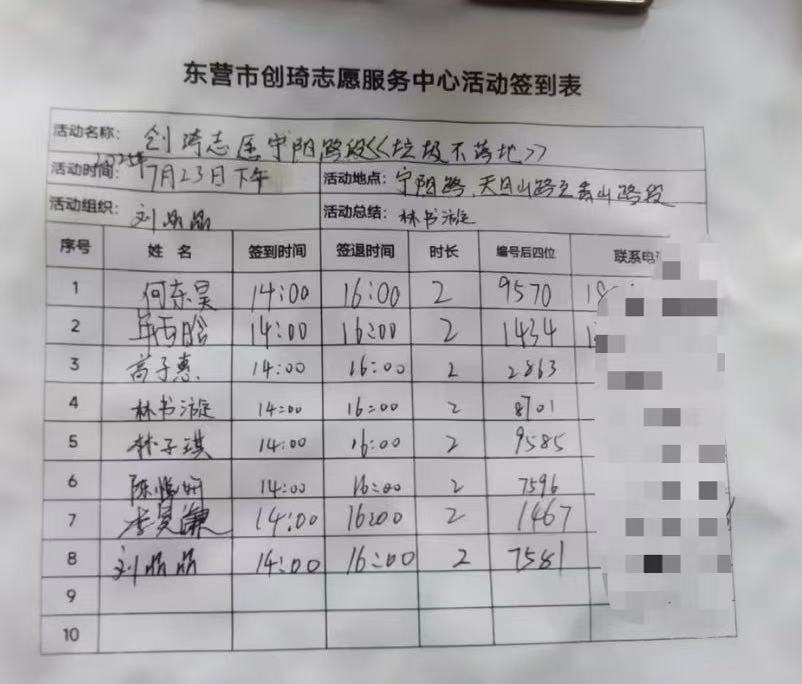 东营市创琦志愿服务中心活动签到表
活动名称: 创琦志愿宁阳路段《垃圾不落地》
活动时间: 2025年7月23日下午 活动地点: 宁阳路、天目山路至泰山路段
活动组织: 刘晶晶 活动总结: 林书漩
序号 姓 名 签到时间 签退时间 时长 编号后四位 联系电
1 何东昊 14:00 16:00 2 9570
2 14:00 16:00 2 1434
3 高子惠 14:00 16:00 2 2863
4 林书漩 14:00 16:00 2 8701
5 林子琪 14:00 16:00 2 9585
6 陈 妍 14:00 16:00 2 7596
7 李 谦 14:00 16:00 2 1467
8 刘晶晶 14:00 16:00 2 7581
9
10